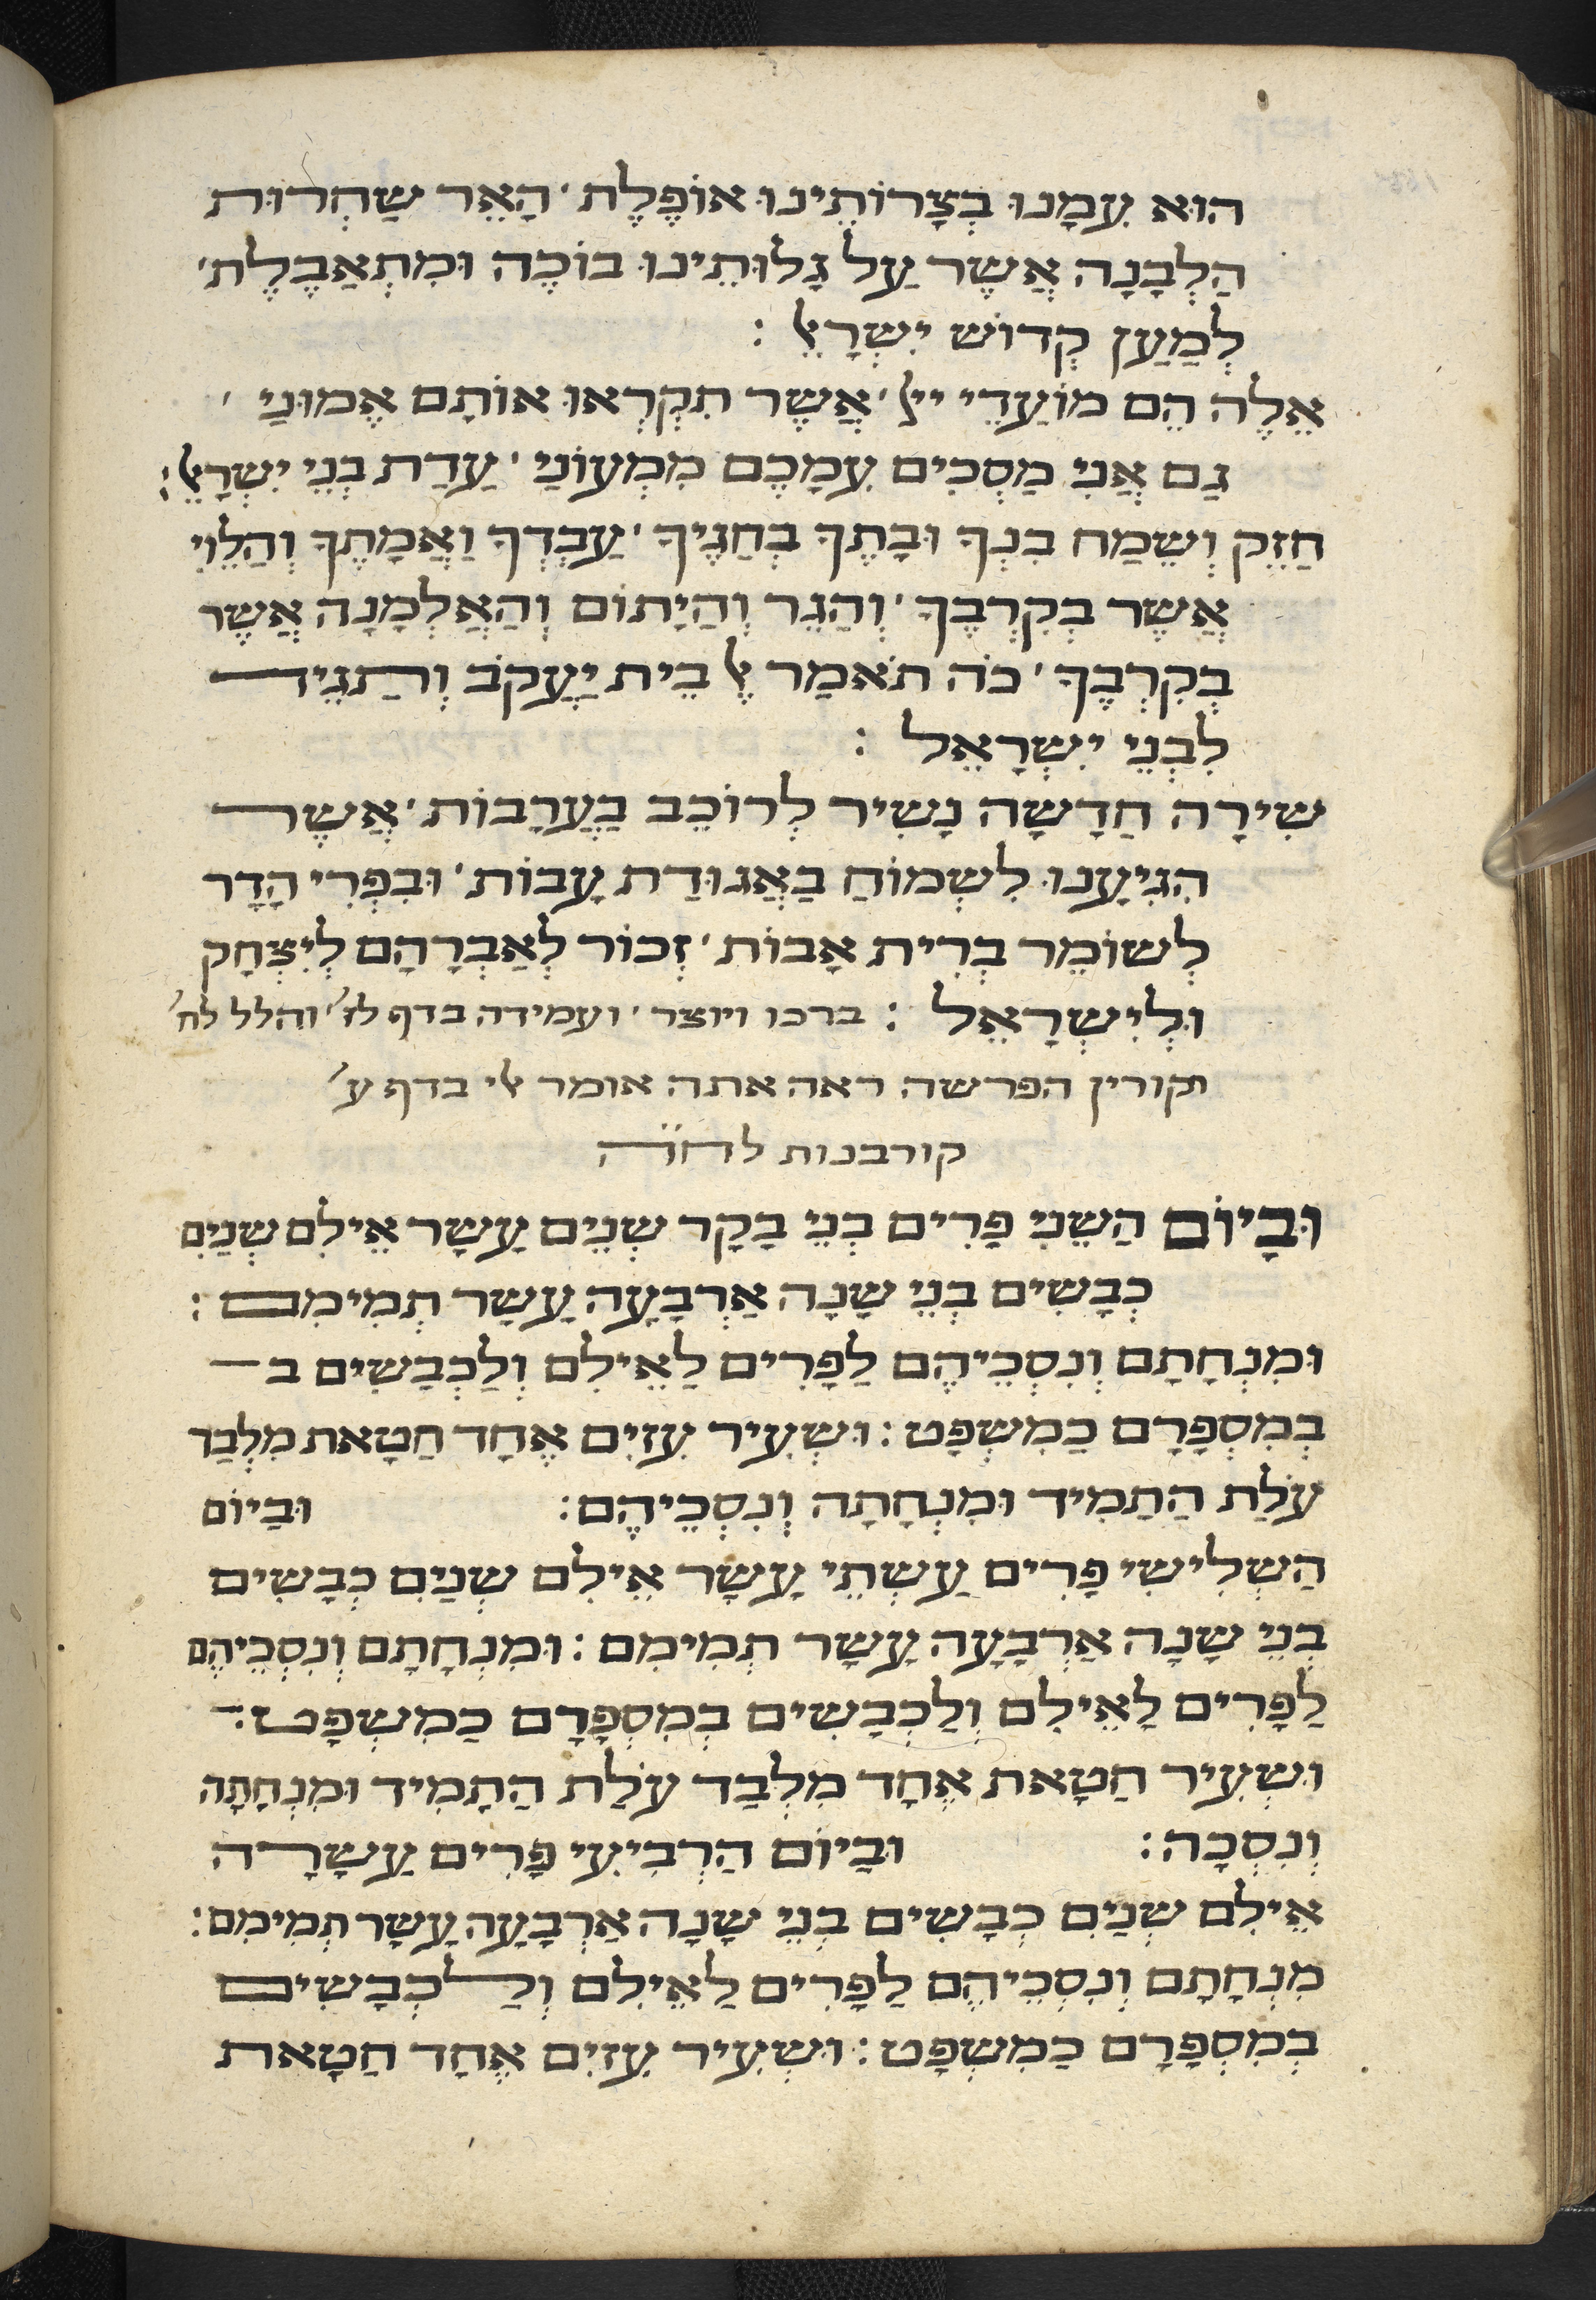 הוּא עִמָנוּ בְצָרוֹתֵינוּ אוֹפֶלֶת׳ הָאֵר שַחְרוּת
הַלְבָנָה אֲשֶר עַל גָלוּתֵינוּ בוֹכֶה וּמִתְאַבֶלֶת׳
לְמַעַן קְדוֹש יִשְרָאֵל :
אֵלֶה הֵם מוֹעֲדֵי ייֹ׳ אֲשֶר תִקְרְאוּ אוֹתָם אֱמוּנַי ׳
גַם אֲנִי מַסְכִים עִמָכֶם מִמְעוֹנַי ׳ עֲדַת בְנֵי יִשְרָאֵל :
חַזֵק וְשַמַח בִנְךָ וּבִתֶךָ בְחַגֶיךָ ׳ עַבְדְךָ וַאֲמָתֶךָ וְהַלֵוִי
אֲשֶר בְקִרְבֶךָ ׳ וְהַגֵר וְהַיָתוֹם וְהָאַלְמָנָה אֲשֶר
בְקִרְבֶךָ ׳ כֹה תֹאמַר אֶל בֵית יַעֲקֹב וְתַגֵיד
לִבְנֵי יִשְרָאֵל :
שִירָה חֲדָשָה נָשִיר לְרוֹכֵב בַעֲרָבוֹת ׳ אֲשֶר
הִגִיעָנוּ לִשְמוֹחַ בַאֲגוּדַת עָבוֹת ׳ וּבִפְרִי הָדָר
לְשוֹמֵר בְרִית אָבוֹת ׳ זְכוֹר לְאַבְרָהָם לְיִצְחָק
וּלְיִשְרָאֵל : ברכו ויוצר ׳ ועמידה בדף לז׳ והלל לח׳
וקורין הפרשה ראה אתה אומר אלי בדף ע׳
קורבנות לחו״ה
וּבַיוֹם הַשֵנִי פָרִים בְנֵי בָקָר שְנֵים עָשָר אֵילִם שְנַיִם
כְבָשִים בְנֵי שָנָה אַרְבָעָה עָשָר תְמִימִם :
וּמִנְחָתָם וְנִסְכֵיהֶם לַפָרִים לָאֵילִם וְלַכְבָשִים ב
בְמִסְפָרָם כַמִשְפָט : וּשְעִיר עִזִים אֶחָד חַטָאת מִלְבַד
עֹלַת הַתָמִיד וּמִנְחָתָה וְנִסְכֵיהֶם : וּבַיוֹם
הַשְלִישִי פָרִים עַשְתֵי עָשָר אֵילִם שְנַיִם כְבָשִים
בְנֵי שָנָה אַרְבָעָה עָשָר תְמִימִם : וּמִנְחָתָם וְנִסְכֵיהֶם
לַפָרִים לָאֵילִם וְלַכְבָשִים בְמִסְפָרָם כַמִשְפָט :
וּשְעִיר חַטָאת אֶחָד מִלְבַד עֹלַת הַתָמִיד וּמִנְחָתָה
וְנִסְכָה : וּבַיוֹם הָרְבִיעִי פָרִים עֲשָרָה
אֵילִם שְנַיִם כְבָשִים בְנֵי שָנָה אַרְבָעָה עָשָר תְמִימִם :
מִנְחָתָם וְנִסְכֵיהֶם לַפָרִים לָאֵילִם וְלַכְבָשִים
בְמִסְפָרָם כַמִשְפָט : וּשְעִיר עִזִים אֶחָד חַטָאת